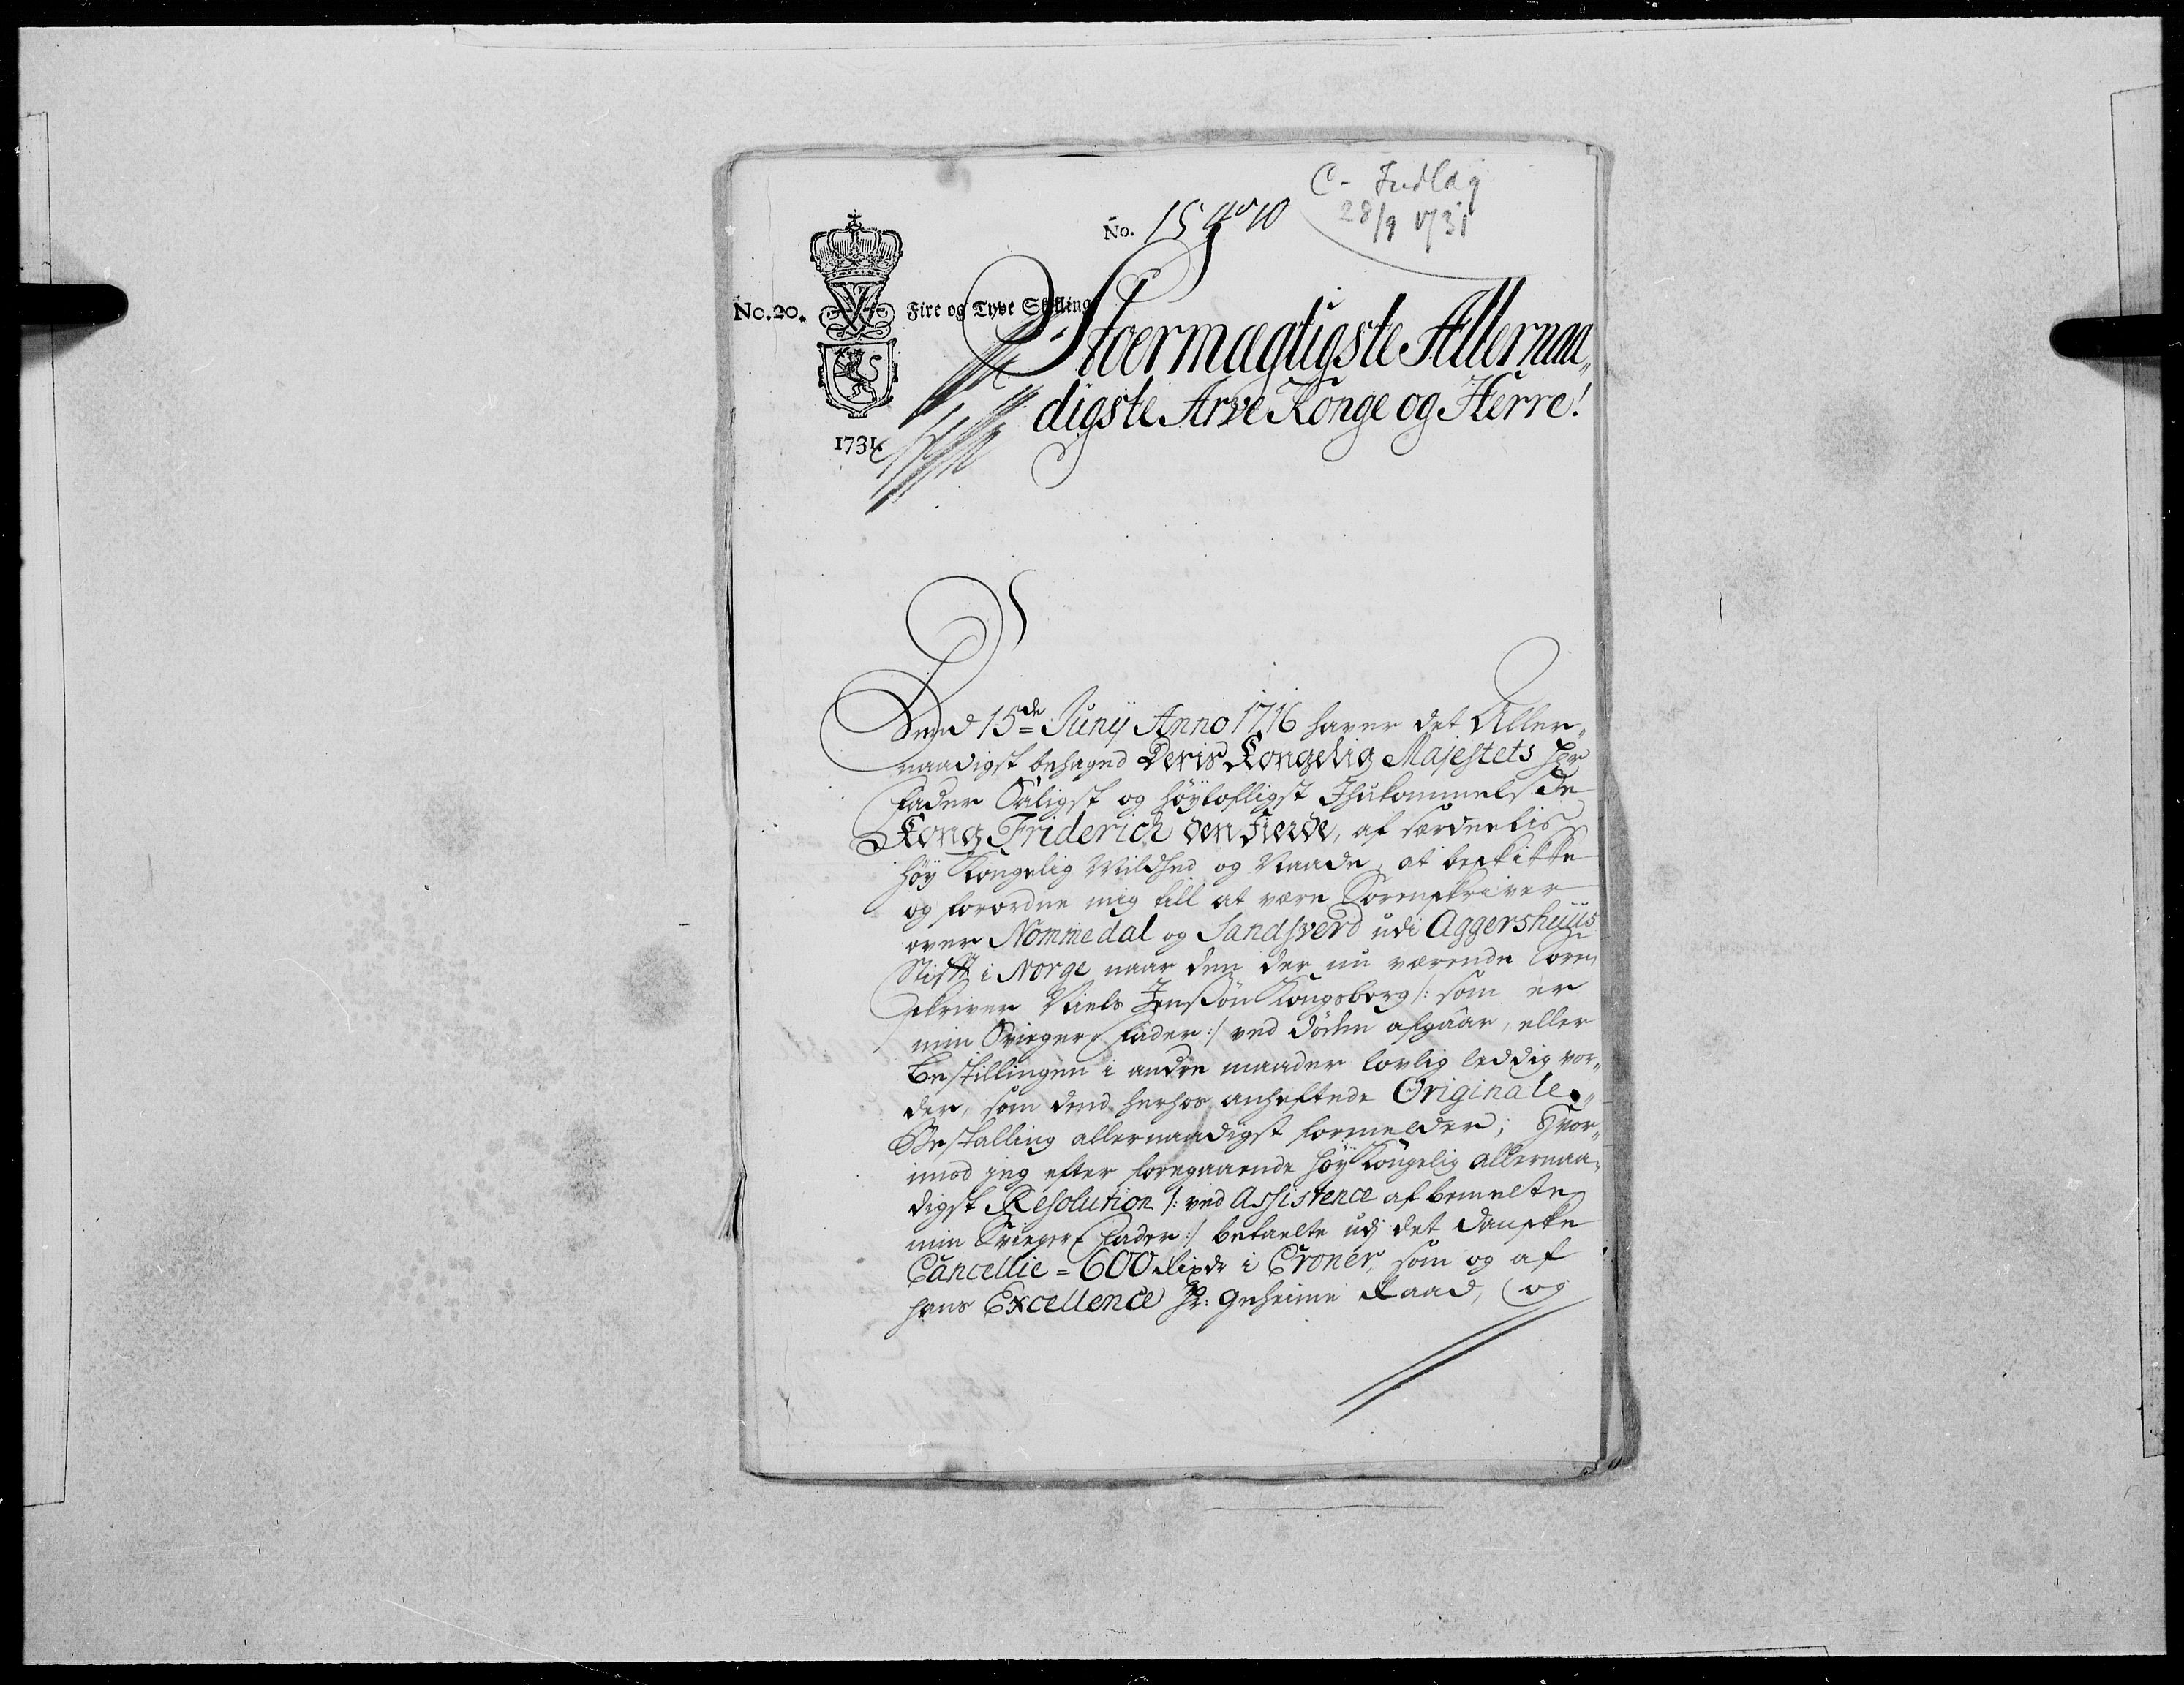 C - Indlæg
28/9 1731
No.
No. 20.
Fire og Tyve Skilling
1731
Stoermægtigste Allernaa„
digste Arve Konge og Herre!
Dend 15de Junij Anno 1716 haver det Aller„
naadigst behaged Deris Kongelig Majestets Hr
Fader Saligst og høylofligst Ihukommelse
Kong Friderich den Fierde, af særdeelis
høy Kongelig Mildhed og Naade, at beskikke
og forordne mig till at være Sorenskriver
over Nommedal og Sandsverd udi Aggershuus
Stift i Norge naar den der nu værende Soren
skriver Niels Jensøn Kongsborg /: som er
min Svieger Fader :/ ved døden afgaar, eller
Bestillingen i andre maader lovlig leddig vor„
der, som dend herhos anheftede Originale
Bestalling allernaadigst formelder; Hvor„
imod jeg efter foregaaende høy Kongelig allernaa„
digst Resolution /: ved Assistence af bemelte
min Svieger Fader :/ betaelte udj det danske
Cancellie = 600 Rixdr i Croner, som og af
hans Excellence Hr: Geheime Raad, og